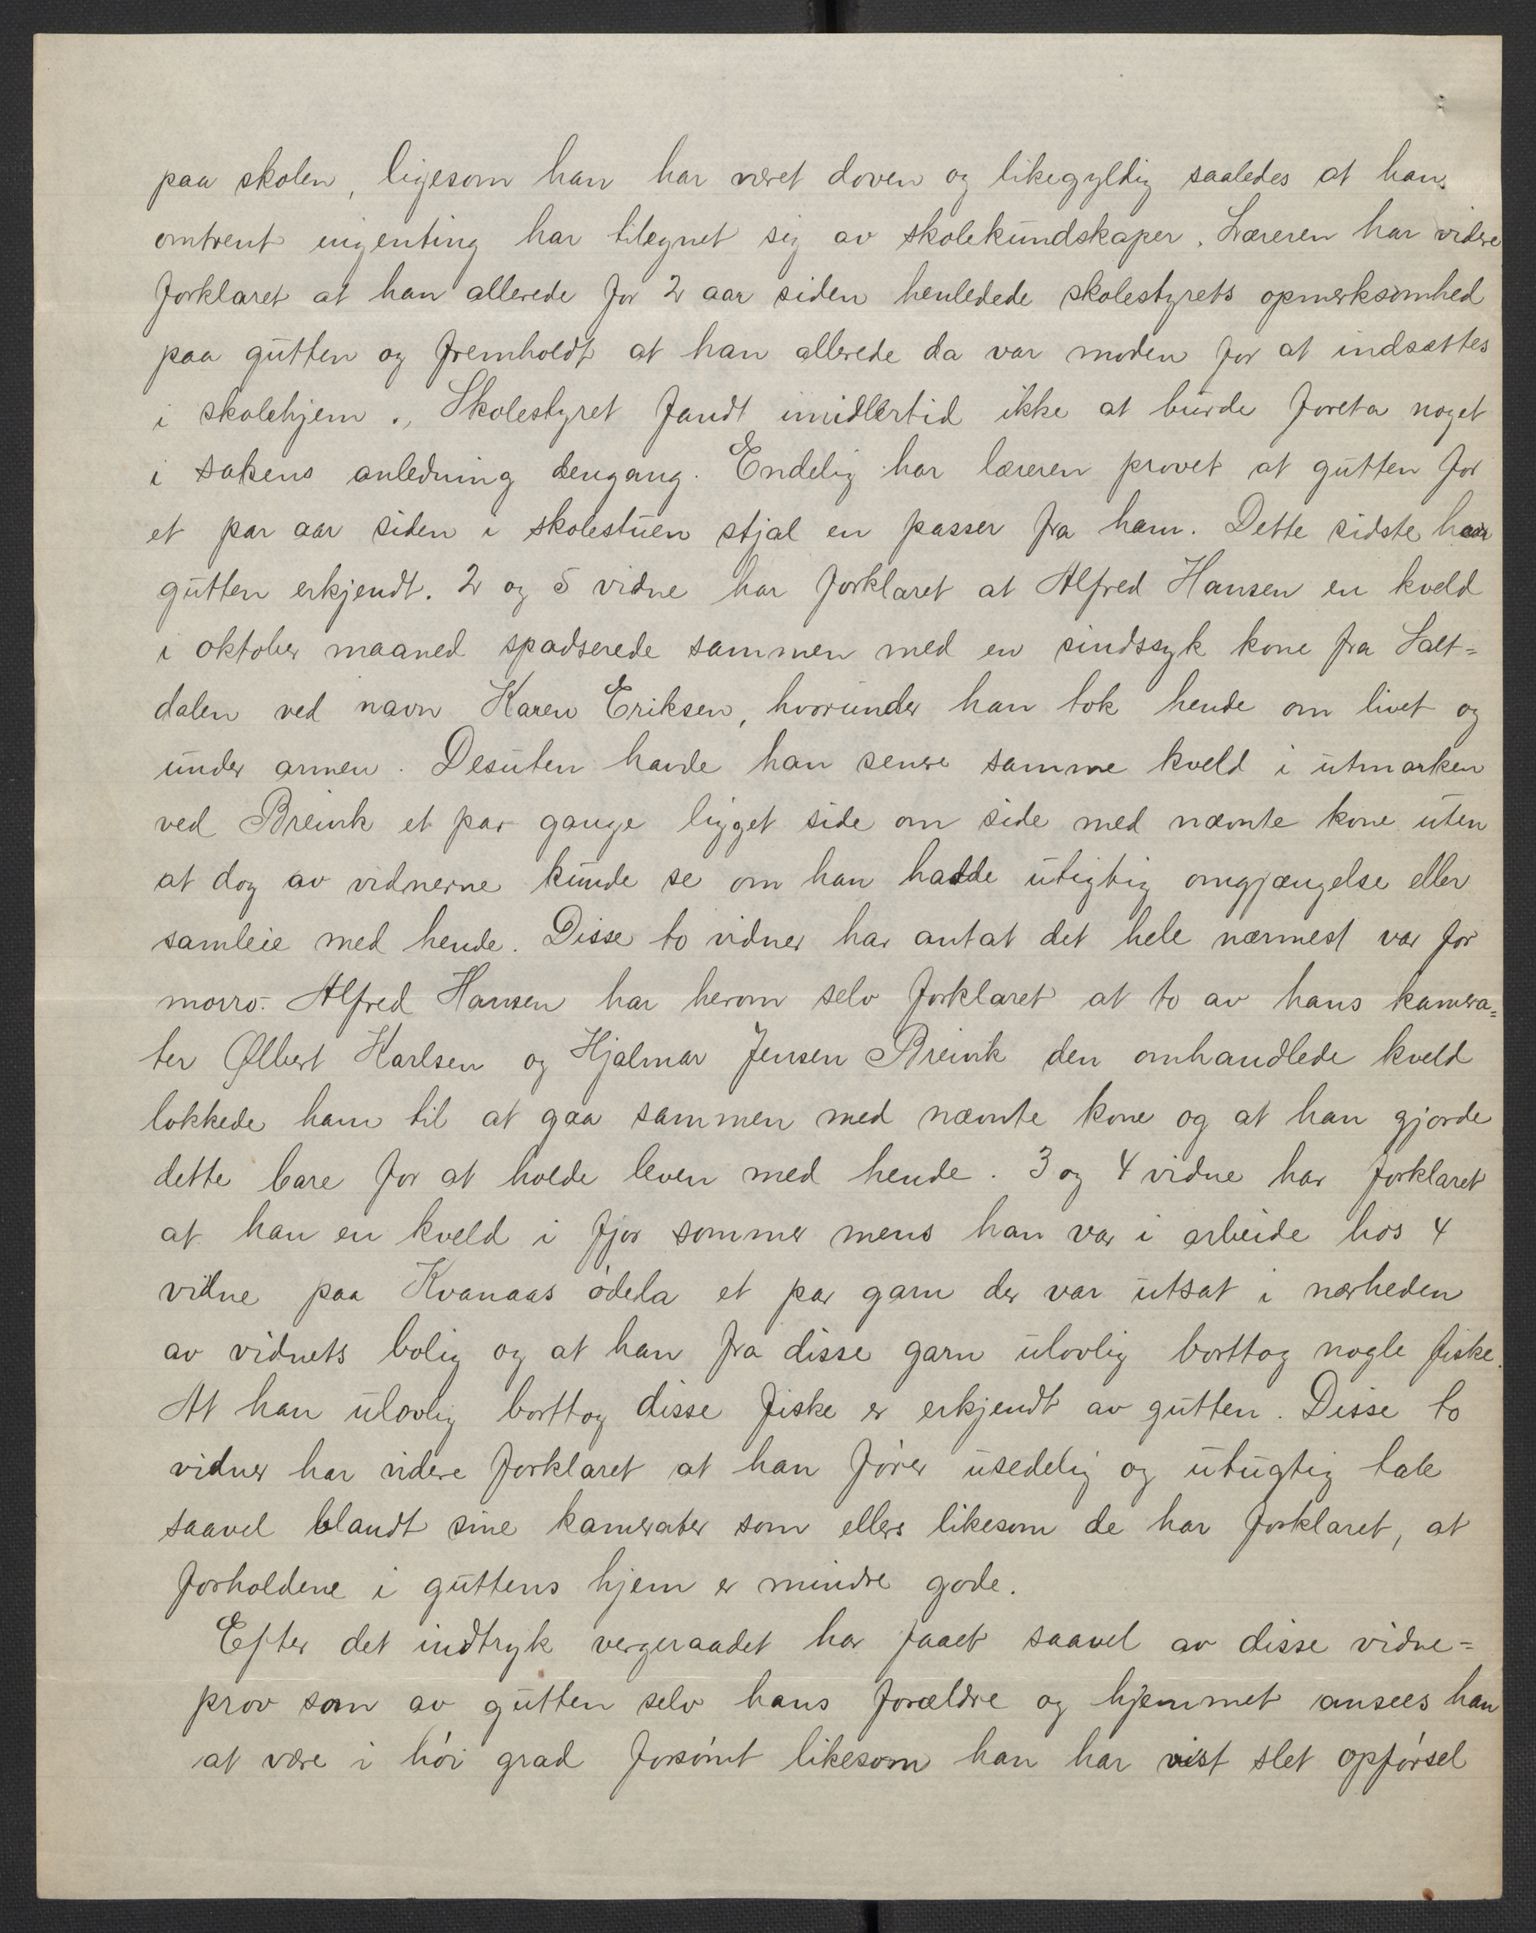 paa skolen, ligesom han har været doven og likegyldig saaledes at han
omtrent ingenting har tilegnet sig av skolekundskaper. Læreren har videre
forklaret at han allerede for 2 aar siden henledede skolestyrets opmerksomhed
paa gutten og fremholdt at han allerede da var moden for at indsættes
i skolehjem. Skolestyret fandt imidlertid ikke at burde foreta noget
i sakens anledning dengang. Endelig har læreren provet at gutten for
et par aar siden i skolestuen stjal en passer fra ham. Dette sidste har
gutten erkjendt. 2 og 5 vidne har forklaret at Alfred Hansen en kveld
i oktober maaned spadserede sammen med en sindssyk kone fra Salt=
dalen ved navn Karen Eriksen, hvorunder han tok hende om livet og
under armen. Desuten havde han senere samme kveld i utmarken
ved Breivik et par gange ligget side om side med nævnte kone uten
at dog av vidnerne kunde se om han hadde utigtig omgjængelse eller
samleie med hende. Disse to vidner har antat det hele nærmest var for
morro. Alfred Hansen har herom selv forklaret at to av hans kamera=
ter Ølbert Karlsen og Hjalmar Jensen Breivik den omhandlede kveld
lokkede ham til at gaa sammen med nævnte kone og at han gjorde
dette bare for at holde leven med hende. 3 og 4 vidne har forklaret
at han en kveld i fjor sommer mens han var i arbeide hos 4
vidne paa Kvanaas ødela et par garn der var utsat i nærheden
av vidnets bolig og at han fra disse garn ulovlig borttog nogle fiske.
At han ulovlig borttog disse fiske er erkjendt av gutten. Disse to
vidner har videre forklaret at han fører usedelig og utugtig tale
saavel blandt sine kamerater som ellers likesom de har forklaret, at
forholdene i guttens hjem er mindre gode.
Efter det indtryk vergeraadet har faaet saavel av disse vidne=
prov som av gutten selv hans forældre og hjemmet ansees han
at være i høi grad forsømt likesom han har vist slet opførsel